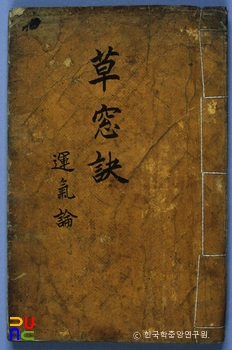 草窓訣
運氣論
© 한국학중앙연구원